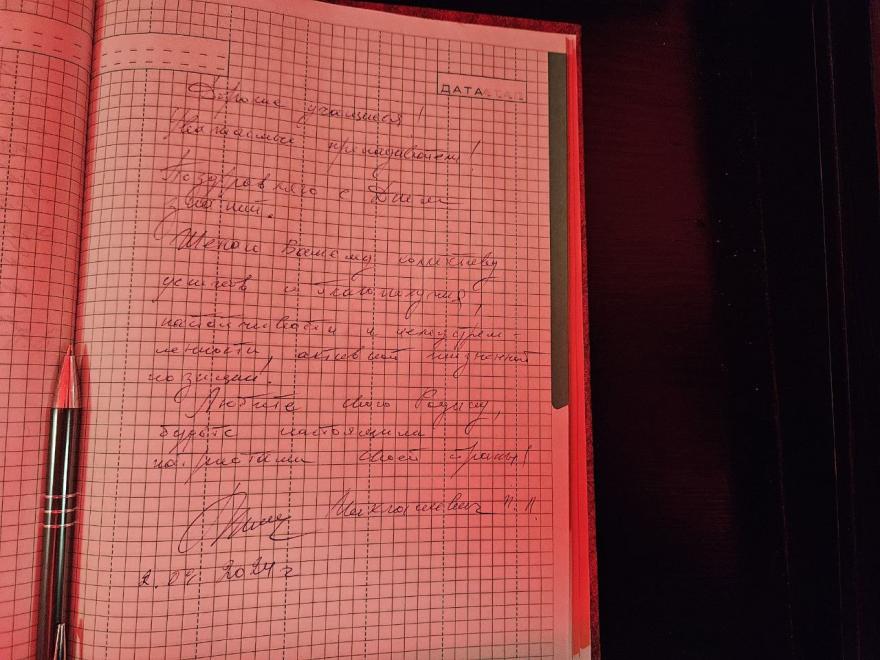 ДАТА
Дорогие учащиеся!
Уважаемые преподаватели!
Поздравляю с Днем
знаний.
Желаю Вашему коллективу
успехов и благополучия,
настойчивости и целеустрем-
ленности, активной жизненной
позиции!
Любите свою Родину,
будьте настоящими
патриотами своей страны!
П.Л.
2.09.2024 г